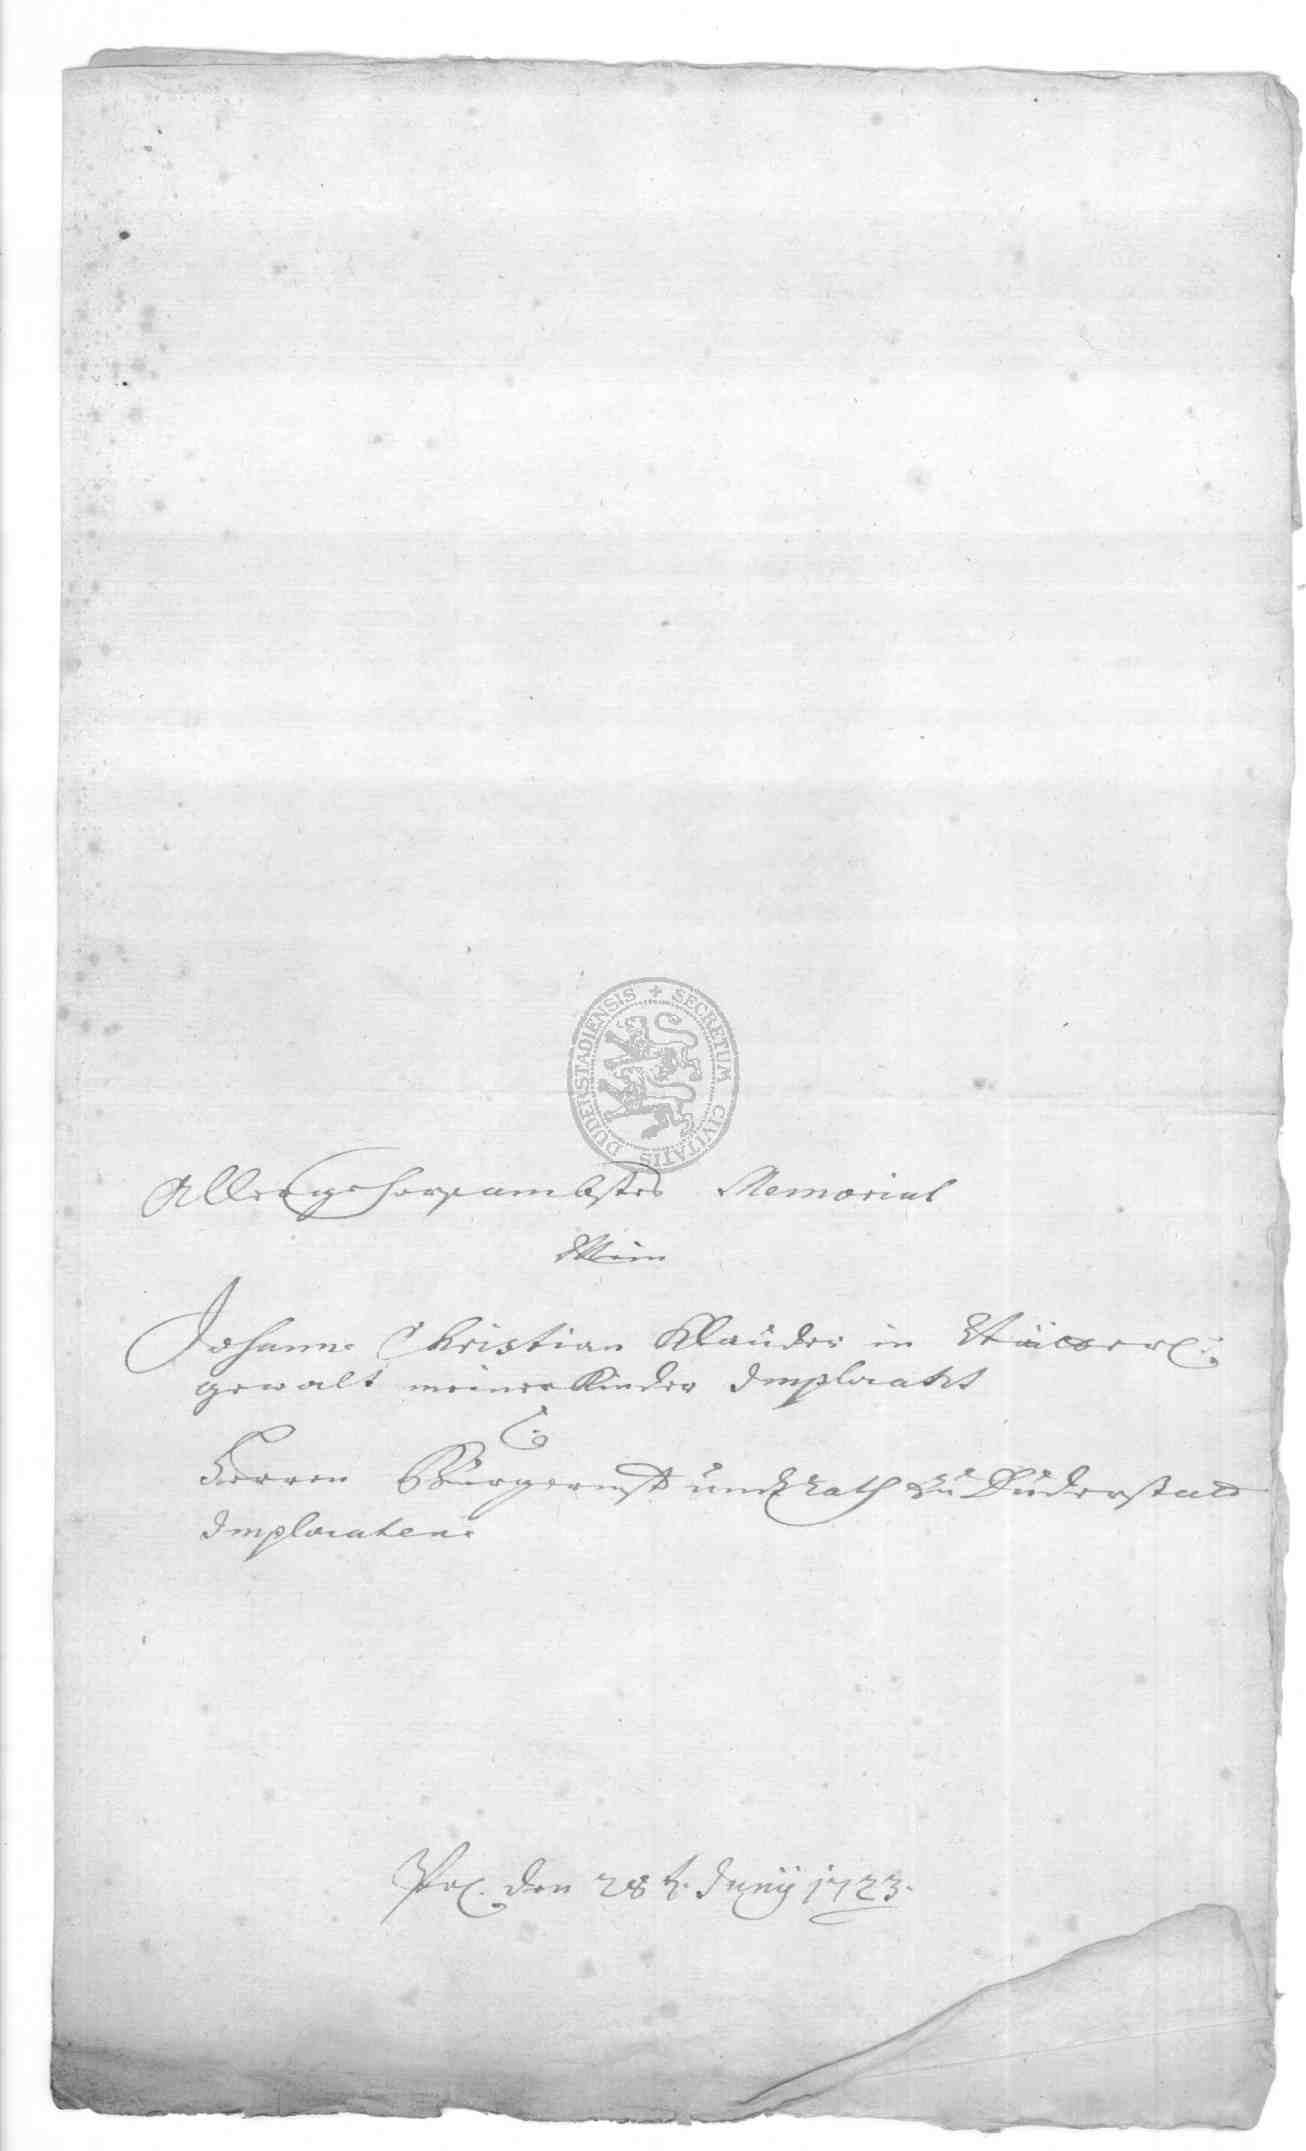 SECRETUM CIVITATIS DUDERSTADIENSIS
Allergehorsambstes Memorial
Mein
Johann Christian Klauder in Vätterl:
gewalt meiner Kinder Implorant
C:
Herren Bürgermstr und Rath zu Duderstadt
Imploraten.
den 28 t. Junÿ 1723.